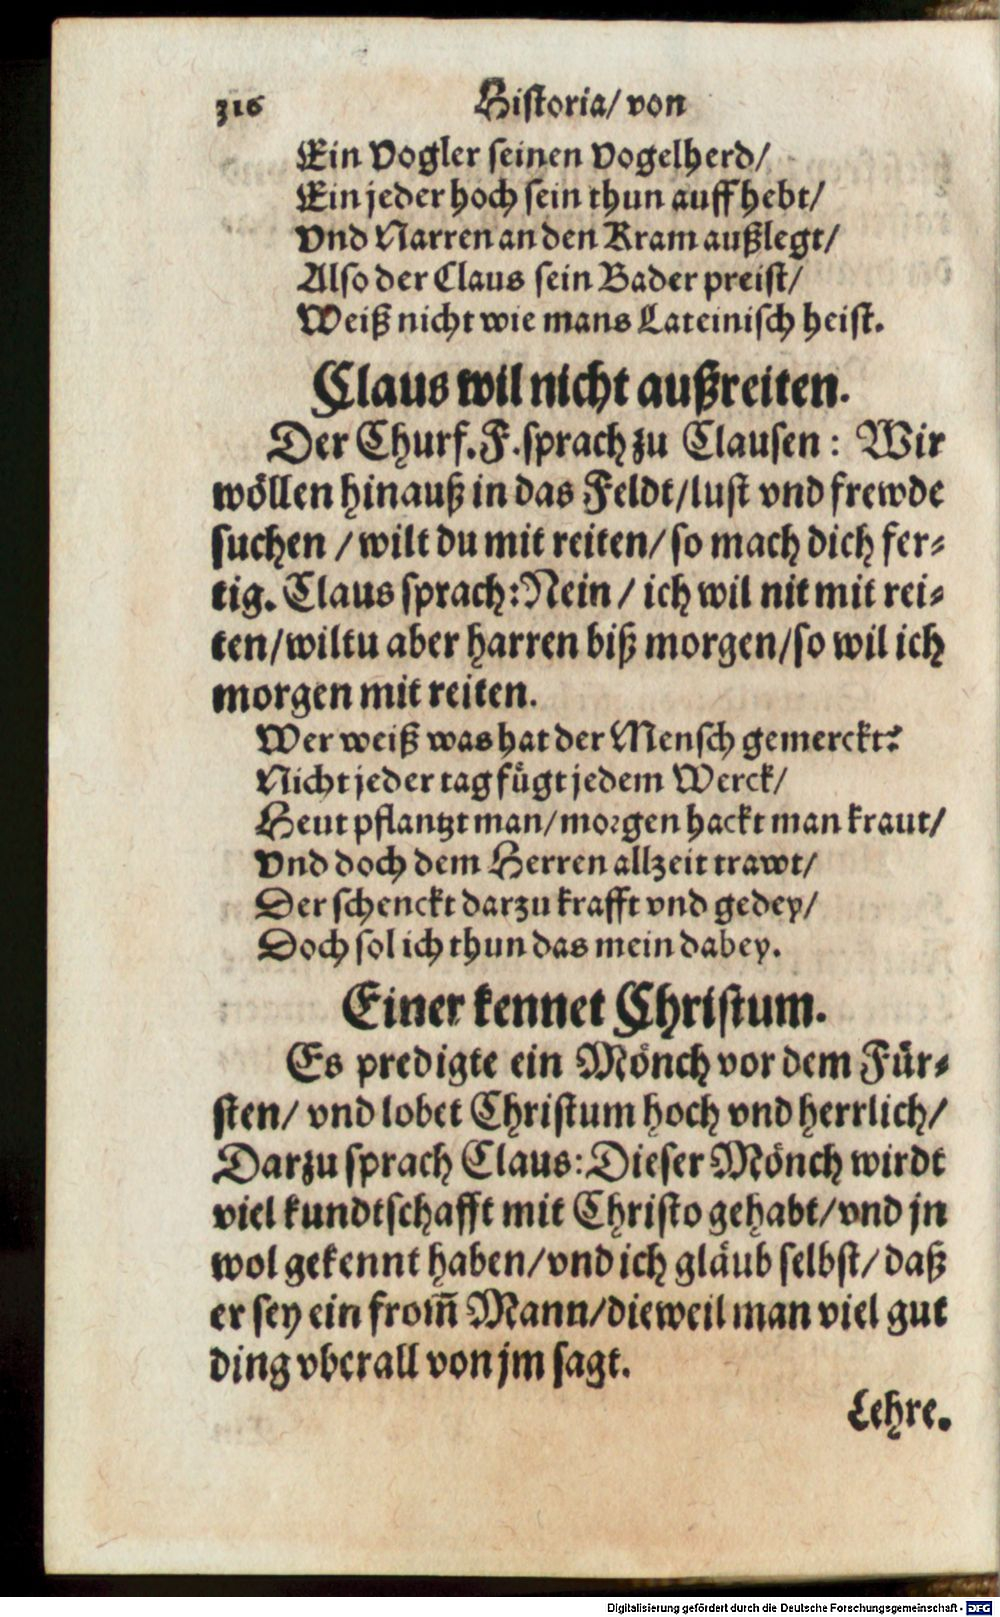 316 Historia/ von
Ein Vogler seinen Vogelherd/
Ein jeder hoch sein thun auff hebt/
Vnd Narren an den Kram außlegt/
Also der Claus sein Bader preist/
Weiß nicht wie mans Lateinisch heist.
Claus wil nicht außreiten.
Der Churf. F. sprach zu Clausen: Wir
wöllen hinauß in das Feldt/lust vnd frewde
suchen / wilt du mit reiten/ so mach dich fer-
tig. Claus sprach: Nein / ich wil nit mit rei-
ten/wiltu aber harren biß morgen/so wil ich
morgen mit reiten.
Wer weiß was hat der Mensch gemerckt?
Nicht jeder tag fügt jedem Werck/
Heut pflantzt man/morgen hackt man kraut/
Vnd doch dem Herren allzeit trawt/
Der schenckt darzu krafft vnd gedey/
Doch sol ich thun das mein dabey.
Einer kennet Christum.
Es predigte ein Mönch vor dem Für-
sten/ vnd lobet Christum hoch vnd herrlich/
Darzu sprach Claus: Dieser Mönch wirdt
viel kundtschafft mit Christo gehabt/vnd jn
wol gekennt haben/vnd ich gläub selbst/ daß
er sey ein from̄ Mann/dieweil man viel gut
ding vberall von jm sagt.
Lehre.
Digitalisierung gefördert durch die Deutsche Forschungsgemeinschaft - DFG